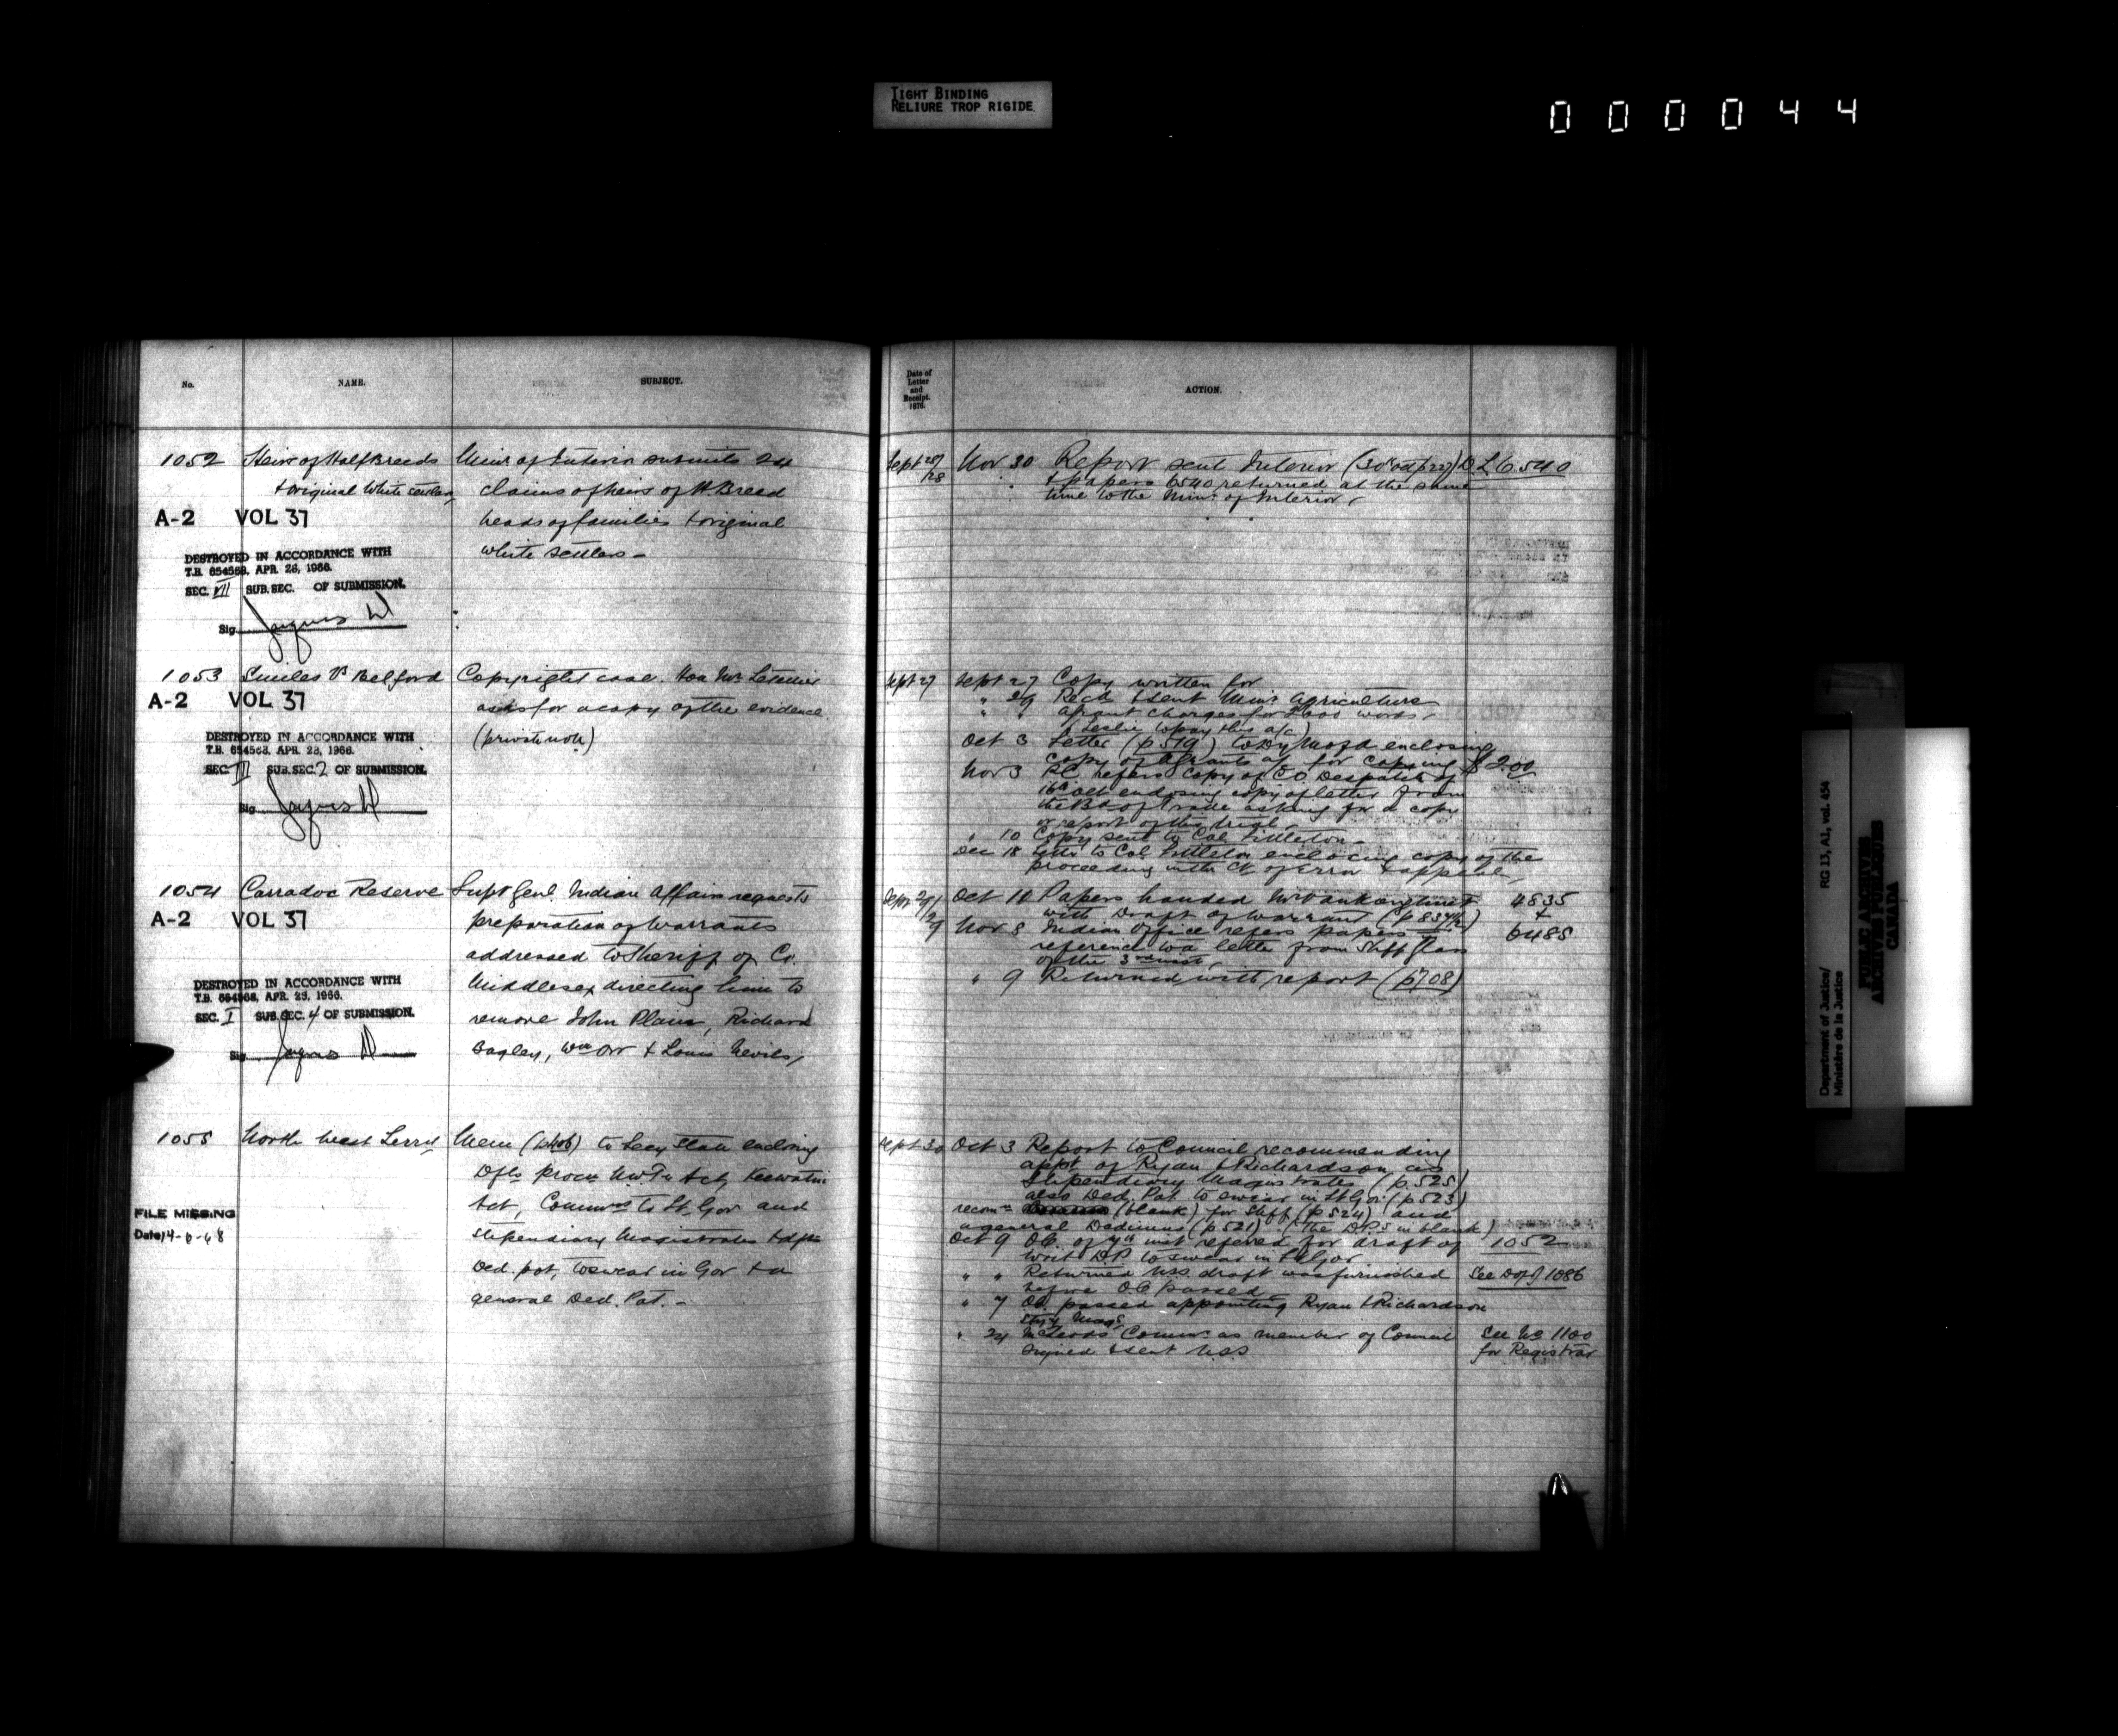 TIGHT BINDING
RELIURE TROP RIGIDE
000044
No.
NAME.
SUBJECT.
1052 Heirs of Half Breeds Minr of Interior submits 24
& original White settlers claims of heirs of H Breed
A-2 VOL 37 heads of families & original
white settlers -
DESTROYED IN ACCORDANCE WITH
T.B. 654568, APR. 28, 1966.
SEC. VII SUB. SEC. OF SUBMISSION.
Sig.
1053 Smiles vs Belford Copyright case. Hon Mr Letellier
A-2 VOL 37 asks for a copy of the evidence
(private note)
DESTROYED IN ACCORDANCE WITH
T.B. 654568, APR. 28, 1966.
SEC. III SUB. SEC. 2 OF SUBMISSION.
Sig.
1054 Carradoc Reserve Supt Genl Indian Affairs requests
A-2 VOL 37 preparation of warrants
addressed to Sheriff of Co.
DESTROYED IN ACCORDANCE WITH Middlesex directing him to
T.B. 654568, APR. 28, 1966.
SEC. I SUB. SEC. 4 OF SUBMISSION. remove John Plain, Richard
Sig. Bagley, Wm Orr & Louis Nevils,
1055 North West Terry Mem to Secy State enclosing
Dfts procn NWTy Act, Keewatin
Act, Commns to Lt. Gov and
FILE MISSING
Date 14-6-68 stipendiary Magistrates & dfts
Ded. pot, to swear in Gov & a
general Ded. Pot. -
Date of
Letter
and
Receipt.
1876.
ACTION.
Sept 27/28 Nov 30 Report sent Interior D.L. 6540
& papers 6540 returned at the same
time to the Minr of Interior
Sept 27 Sept 27 Copy written for
" 29 Recd & sent Minr Agriculture
" " Grant charges for 2600 words
(Leslie to pay this a/c)
Oct 3 Letter (p 519) to Dy M of A enclosing
copy of Grants a/c for copying $2.00
Nov 3 P.C. refers copy of C.O. Despatch of
16th Oct enclosing copy of letter from
the Bd of Trade asking for a copy
or report of this trial
" 10 Copy sent to Col Littleton
Dec 18 Letter to Col Littleton enclosing copy of the
proceeding in the Ct of Error & appeal
Oct 10 Papers handed 4835
with Draft of Warrant &
Nov 8 Indian Office refers papers 6485
reference to a letter from Shff Glass
of the 3rd inst
" 9 Returned with report (p708)
Sept 30 Oct 3 Report to Council recommending
appt of Ryan & Richardson as
Stipendiary Magistrates (p.525)
also Ded. Pot. to swear in Lt Gov (p.523)
recomn (blank) for Shff (p 524) and
a general Dedimus (p 521) (The DPs in blank)
Oct 9 OC. of 4th inst refered for draft of 1052
Writ D.P. to swear in Lt Gov
" " Returned USS. draft was furnished See 1086
before OC passed
" 7 OC. passed appointing Ryan & Richardson
Sty Mags
" 24 McLeods Commn as member of Council See No 1100
signed & sent USS for Registrar
Department of Justice/
Ministère de la Justice
RG 13, A1, vol. 454
PUBLIC ARCHIVES
ARCHIVES PUBLIQUES
CANADA